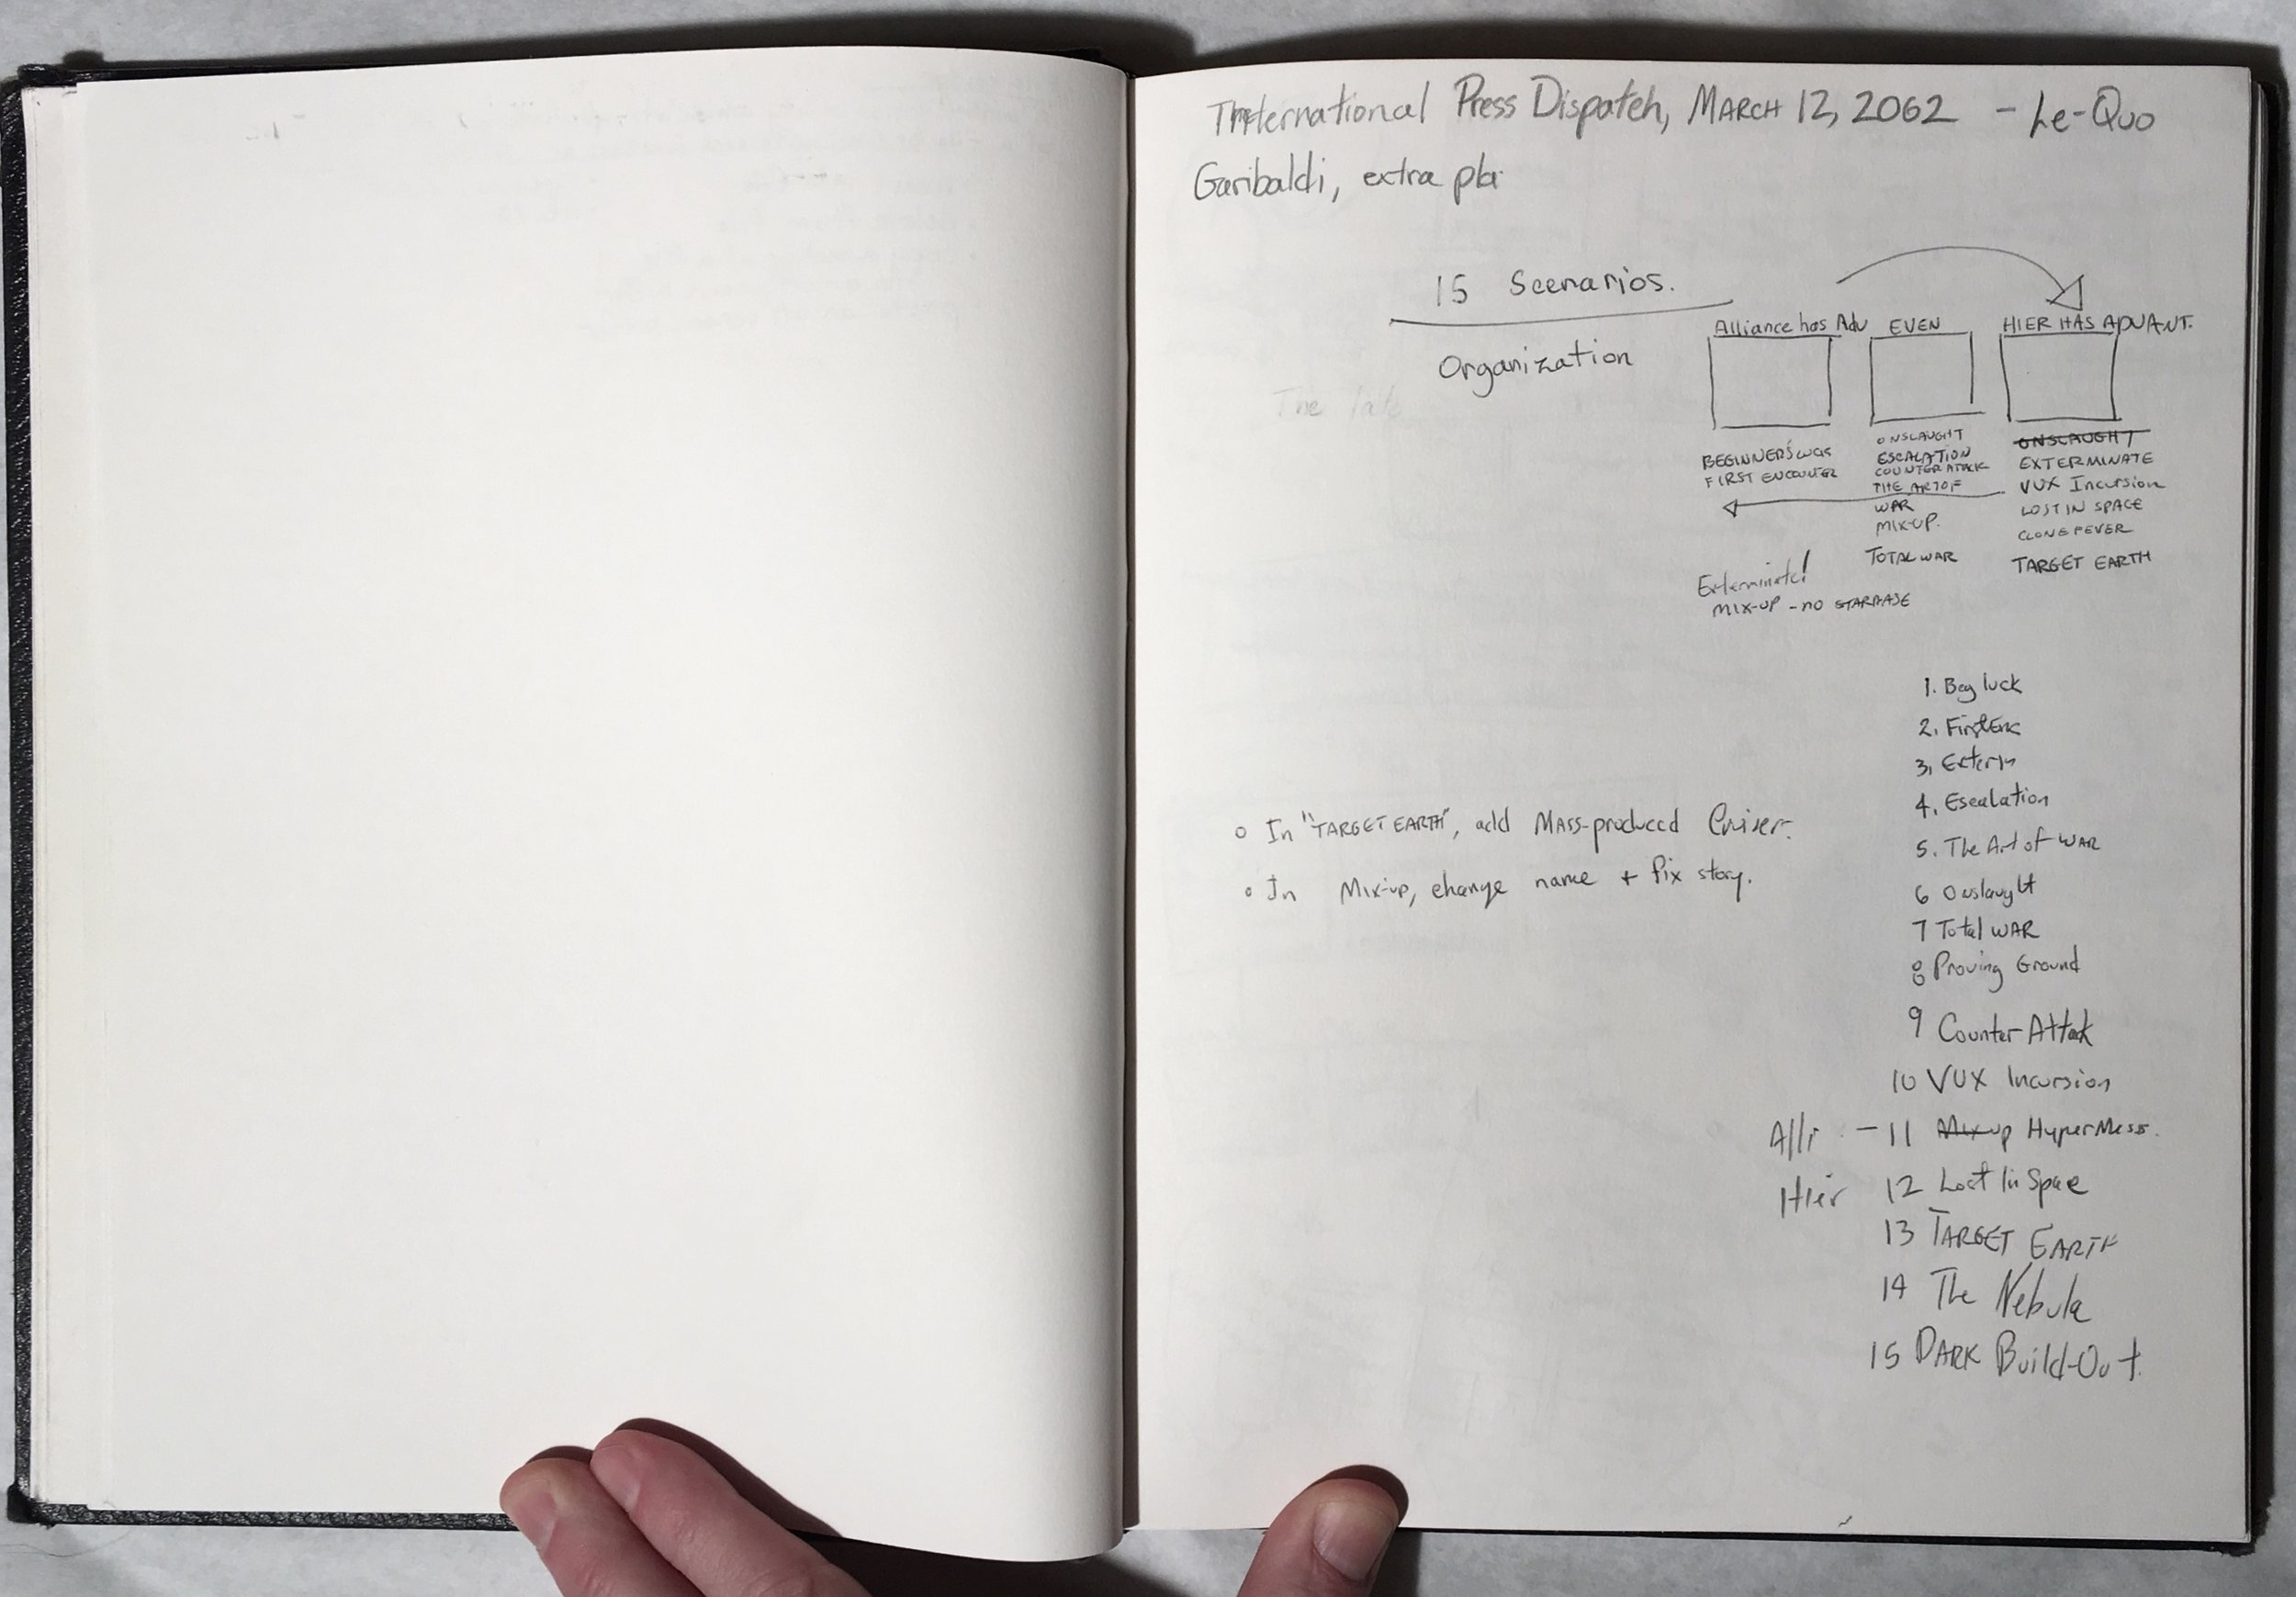 International Press Dispatch, MARCH 12, 2062 - Le-Quo
Garibaldi, extra pla
15 Scenarios.
Organization
The Tale
Alliance has Adv
EVEN
HIER HAS ADVANT.
BEGINNER'S
FIRST ENCOUNTER
ONSLAUGHT
ESCALATION
COUNTER ATTACK
THE ART OF
WAR
MIX-UP.
TOTAL WAR
ONSLAUGHT
EXTERMINATE
VUX Incursion
LOST IN SPACE
CLONE FEVER
TARGET EARTH
Exterminate!
MIX-UP - no STARBASE
o In "TARGET EARTH", add Mass-produced Cruiser.
o In Mix-up, change name + fix story.
1. Beg luck
2. First Enc
3. Exterm
4. Escalation
5. The Art of WAR
6 Onslaught
7 Total WAR
8 Proving Ground
9 Counter Attack
10 VUX Incursion
Alli - 11 Mix-up HyperMess.
Hier 12 Lost In Space
13 TARGET EARTH
14 The Nebula
15 DARK Build-Out.